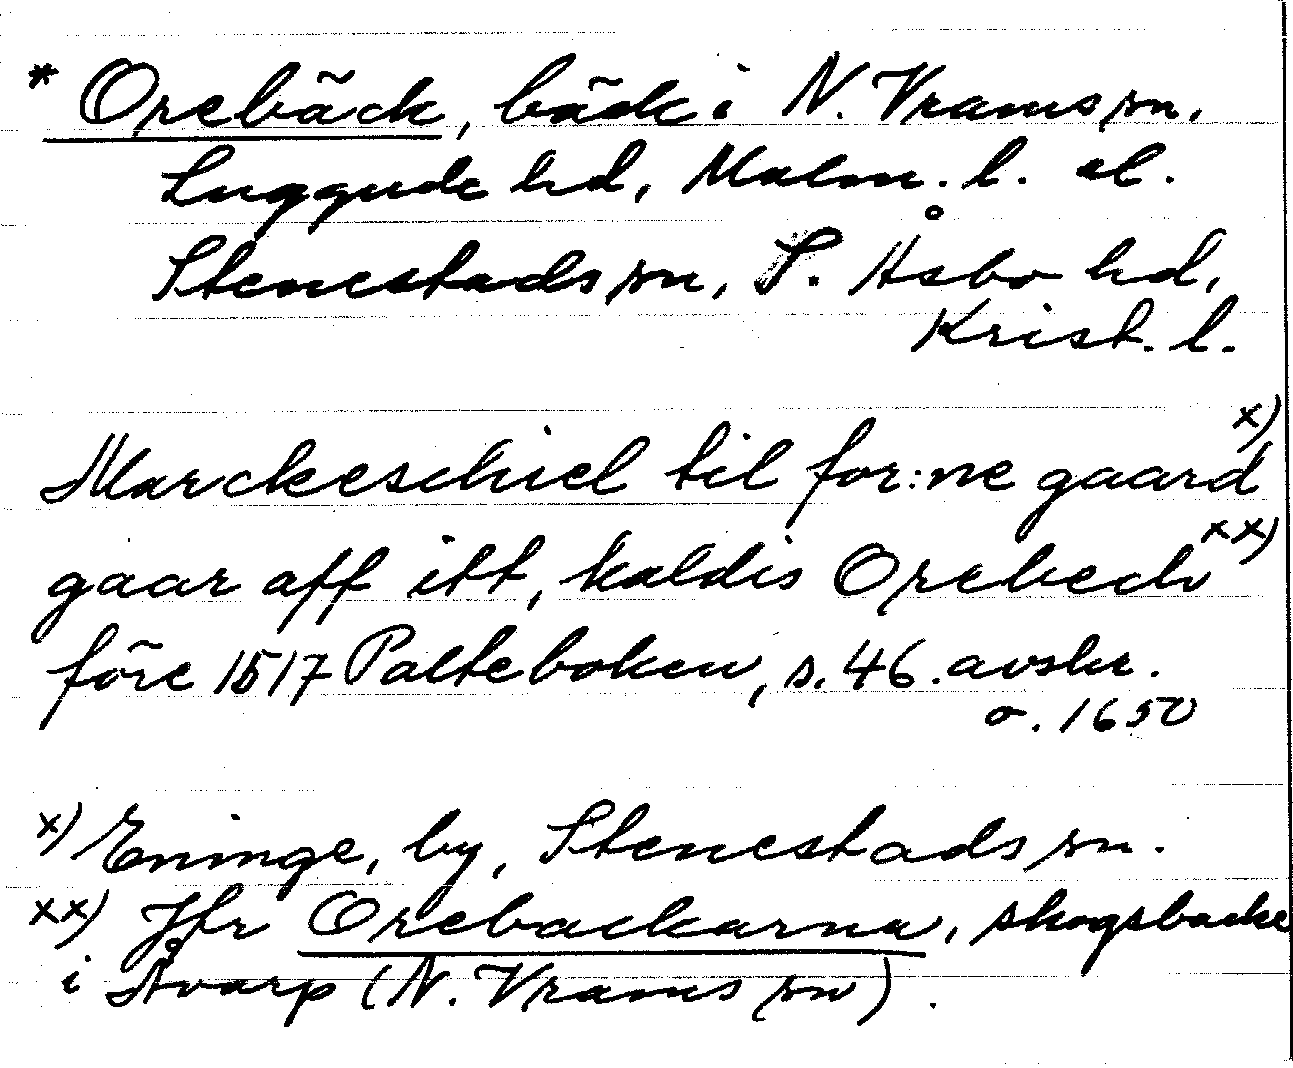 * Orebäck, bäck i N. Vrams sn,
Luggude hd, Malm. l. el.
Stenestads sn, S. Åsbo hd,
Krist. l.
Marckeschiel til for:ne gaard x)
gaar aff itt, kaldis Orebech xx)
före 1517 Palteboken, s. 46. avskr.
o. 1650
x) Eninge, by, Stenestads sn.
xx) Jfr Orebackarna, skogsbacke
i Åvarp (N. Vrams sn).